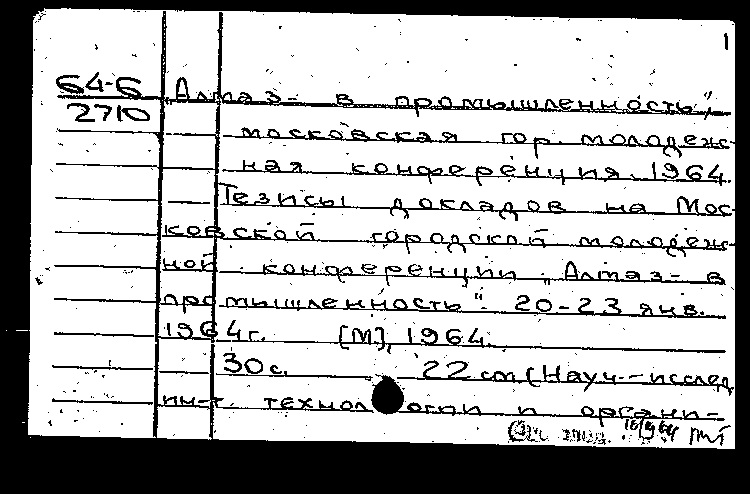 1
64-6 „Алмаз - в промышленность",
2710 московская гор. молодеж-
ная конференция. 1964.
Тезисы докладов на Мос-
ковской городской молодеж-
ной конференции „Алмаз - в
промышленность". 20-23 янв.
1964 г. [М], 1964.
30 с. 22 cm (Науч.-исслед.
ин-т. технологии и органи-